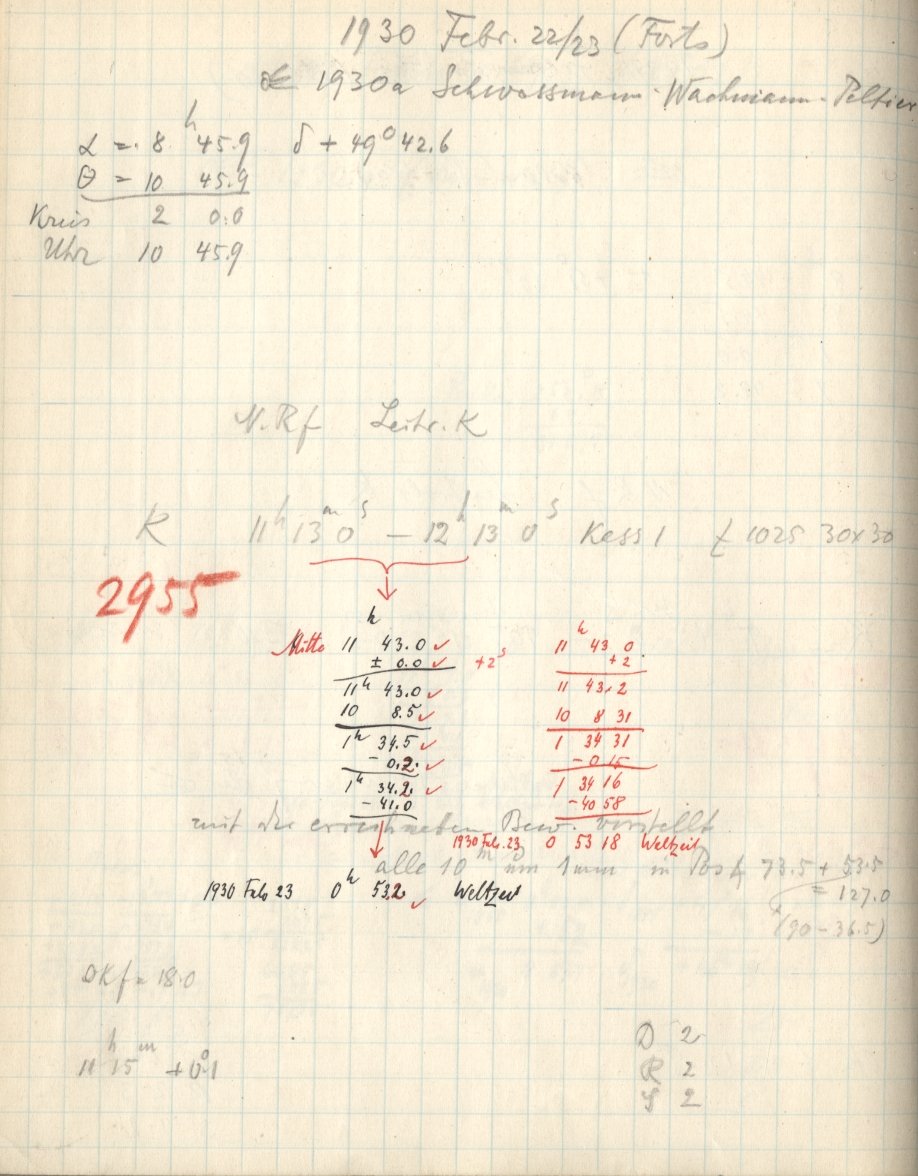 1930 Febr. 22/23 (Forts)
1930a Schwassmann-Wachmann-Peltier
α = 8 h 45.9 δ + 49° 42.6
θ = 10 45.9
Kreis 2 0.0
Uhr 10 45.9
N.Rf Leitr. K
K 11h 13m 0s – 12h 13m 0s Kass 1 1025 30x30
2955
h
Mitte 11 43.0 ✓ 11h 43 0
± 0.0 ✓ +2s +2
11h 43.0 ✓ 11 43.2
10 8.5 ✓ 10 8 31
1h 34.5 ✓ 1 34 31
- 0.2 ✓ - 0 15
1h 34.2 ✓ 1 34 16
- 41.0 - 40 58
mit der errechneten Bew. verstellt
1930 Feb. 23 0 53 18 Weltzeit
alle 10 um 1mm in Pos ∡ 73.5 + 53.5
1930 Feb 23 0h 53.2 ✓ Weltzeit = 127.0
(90 - 36.5)
OKf = 18.0
D 2
11h 15m +0°.1 R 2
S 2